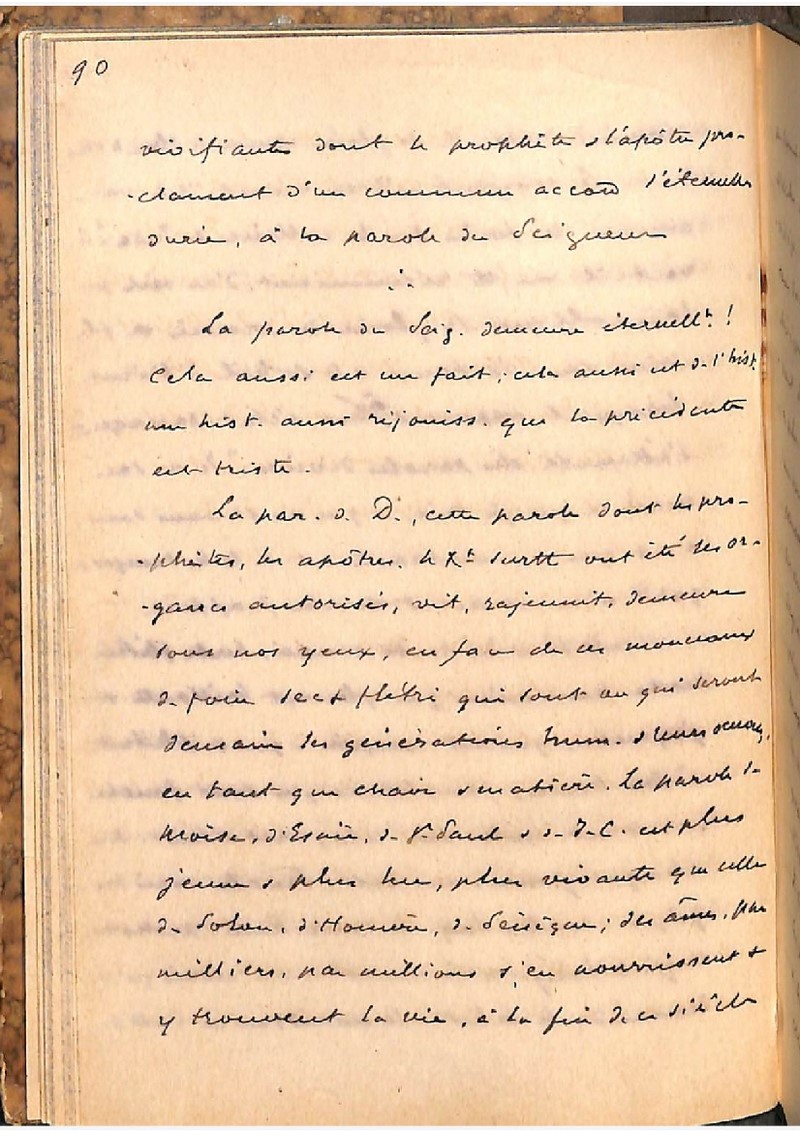 90
vivifiante dont le prophète & l'apôtre pro-
-clament d'un commun accord l'éternelle
durée, à la parole du Seigneur
∴
La parole du Seig. demeure éternellt. !
Cela aussi est un fait ; cela aussi est de l'hist.
une hist. aussi réjouiss. que la précédente
est triste.
La par. de D., cette parole dont les pro-
-phètes, les apôtres, le Xt surtt ont été les or-
-ganes autorisés, vit, rajeunit, demeure
sous nos yeux, en face de ces monceaux
de foin sec & flétri qui sont ou qui seront
demain les générations hum. & leurs
en tant que chair & matière. La parole de
Moïse, d'Esaïe, de St Paul & de J-C. est plus
jeune & plus lue, plus vivante que celle
de Solon, d'Homère, de Sénèque ; des âmes, par
milliers, par millions s'en nourrissent &
y trouvent la vie, à la fin de ce siècle